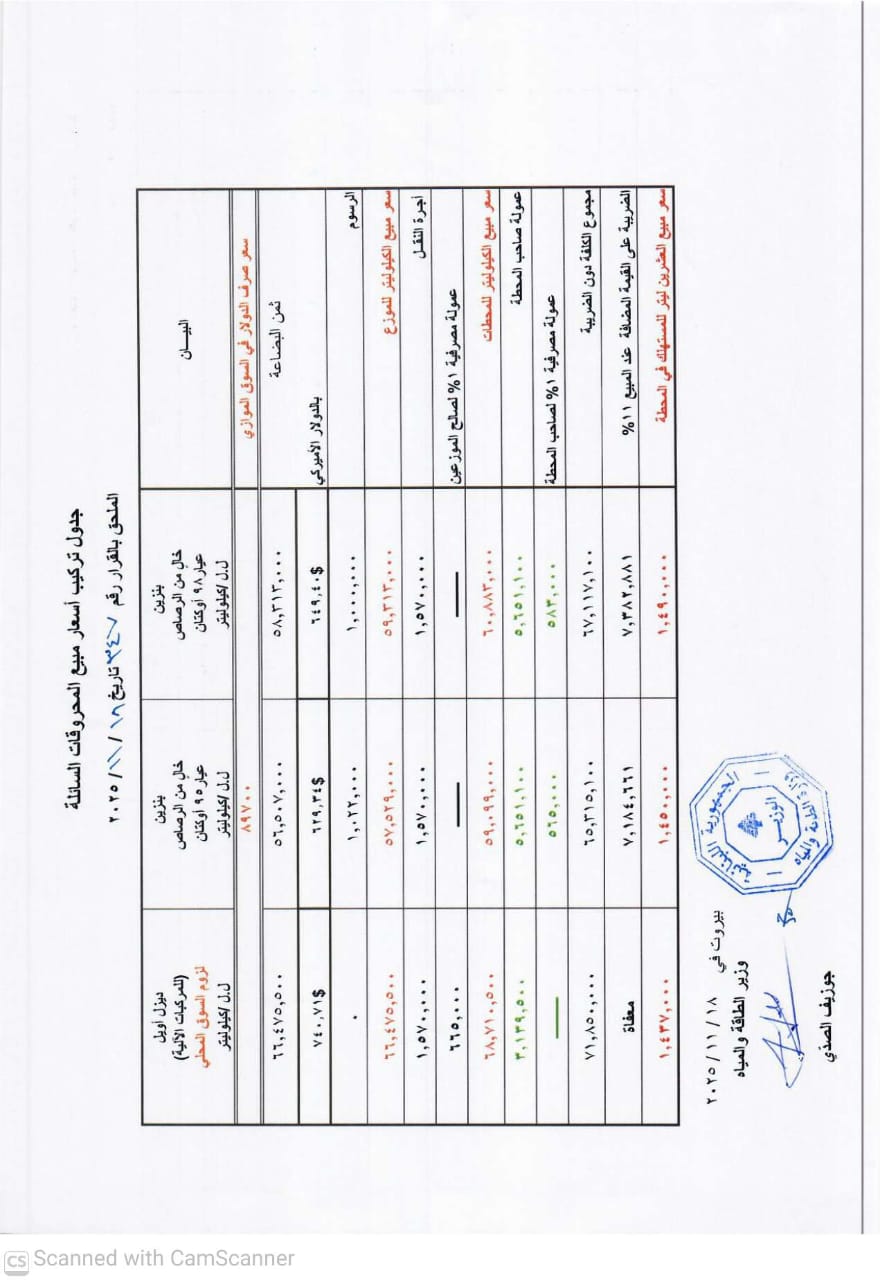 جدول تركيب أسعار مبيع المحروقات السائلة
الملحق بالقرار رقم ٣٤٧ تاريخ ١٨ / ١١ / ٢٠٢٥
البيـــان
بنزين
خالٍ من الرصاص
عيار ٩٨ أوكتان
ل.ل/كيلوليتر
بنزين
خالٍ من الرصاص
عيار ٩٥ أوكتان
ل.ل/كيلوليتر
ديزل أويل
(للمركبات الآلية)
لزوم السوق المحلي
ل.ل/كيلوليتر
سعر صرف الدولار في السوق الموازي ٨٩٧٠٠
ثمن البضاعة ٥٨,٣١٣,٠٠٠ ٥٦,٥٠٧,٠٠٠ ٦٦,٤٧٥,٥٠٠
بالدولار الأميركي ٦٤٩,٤٠$ ٦٢٩,٣٤$ ٧٤٠,٧١$
الرسوم ١,٠٠٠,٠٠٠ ١,٠٢٢,٠٠٠ ٠
سعر مبيع الكيلوليتر للموزع ٥٩,٣١٣,٠٠٠ ٥٧,٥٢٩,٠٠٠ ٦٦,٤٧٥,٥٠٠
أجرة النقــل ١,٥٧٠,٠٠٠ ١,٥٧٠,٠٠٠ ١,٥٧٠,٠٠٠
عمولة مصرفية ١% لصالح الموزعين — — ٦٦٥,٠٠٠
سعر مبيع الكيلوليتر للمحطات ٦٠,٨٨٣,٠٠٠ ٥٩,٠٩٩,٠٠٠ ٦٨,٧١٠,٥٠٠
عمولة صاحب المحطة ٥,٦٥١,١٠٠ ٥,٦٥١,١٠٠ ٣,١٣٩,٥٠٠
عمولة مصرفية ١% لصاحب المحطة ٥٨٣,٠٠٠ ٥٦٥,٠٠٠ —
مجموع الكلفة دون الضريبة ٦٧,١١٧,١٠٠ ٦٥,٣١٥,١٠٠ ٧١,٨٥٠,٠٠٠
الضريبة على القيمة المضافة عند المبيع ١١% ٧,٣٨٢,٨٨١ ٧,١٨٤,٦٦١ معفاة
سعر مبيع العشرين ليتر للمستهلك في المحطة ١,٤٩٠,٠٠٠ ١,٤٥٠,٠٠٠ ١,٤٣٧,٠٠٠
بيروت في ١٨ / ١١ / ٢٠٢٥
وزير الطاقة والمياه
جوزيف الصدّي
الجمهورية اللبنانية
الوزير
وزارة الطاقة والمياه
CS Scanned with CamScanner